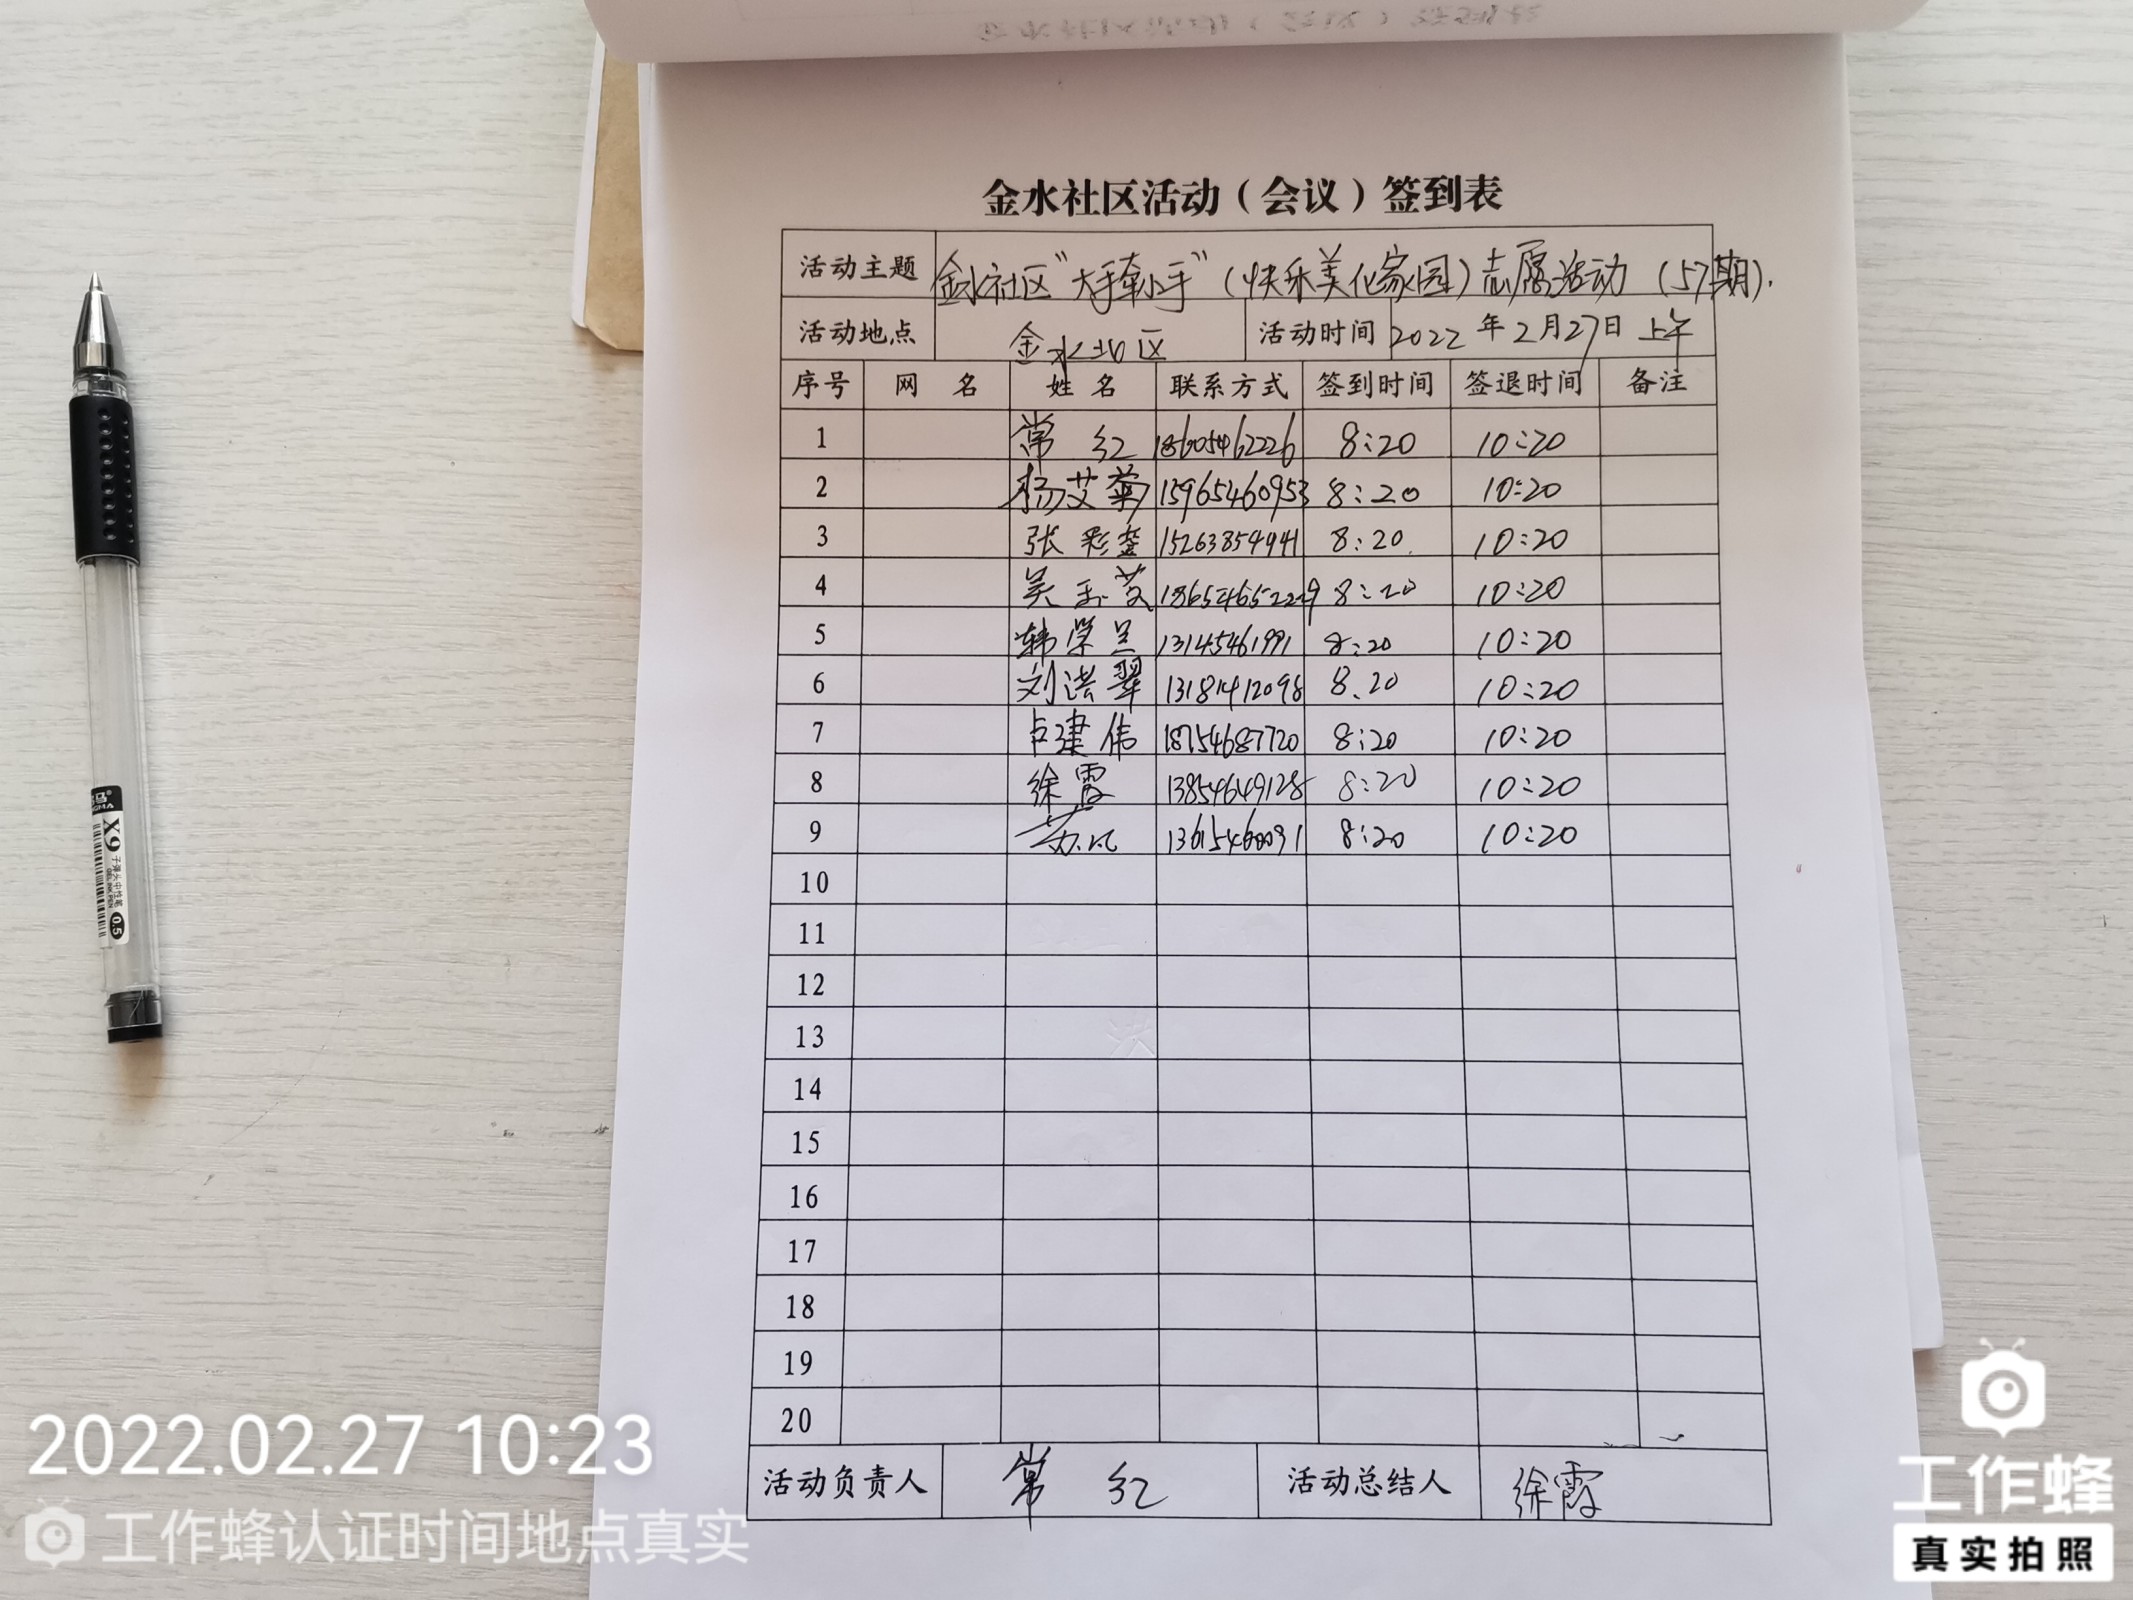 金水社区活动（会议）签到表
活动主题 金水社区“大手牵小手”（快乐美化家园）志愿活动（57期）.
活动地点 金水北区 活动时间 2022年2月27日 上午
序号 网 名 姓 名 联系方式 签到时间 签退时间 备注
1 常 红 18605462226 8:20 10:20
2 杨艾菊 15965460953 8:20 10:20
3 张彩奎 15263854941 8:20 10:20
4 吴玉芝 18654652229 8:20 10:20
5 韩学兰 13145461991 8:20 10:20
6 刘洪翠 13181412098 8.20 10:20
7 卢建伟 18754687720 8:20 10:20
8 徐霞 13854649128 8:20 10:20
9 8:20 10:20
10
11
12
13
14
15
16
17
18
19
20
活动负责人 常 红 活动总结人 徐霞
X9 子弹头中性笔
GEL INK PEN
0.5
2022.02.27 10:23
工作蜂认证时间地点真实
工作蜂
真实拍照